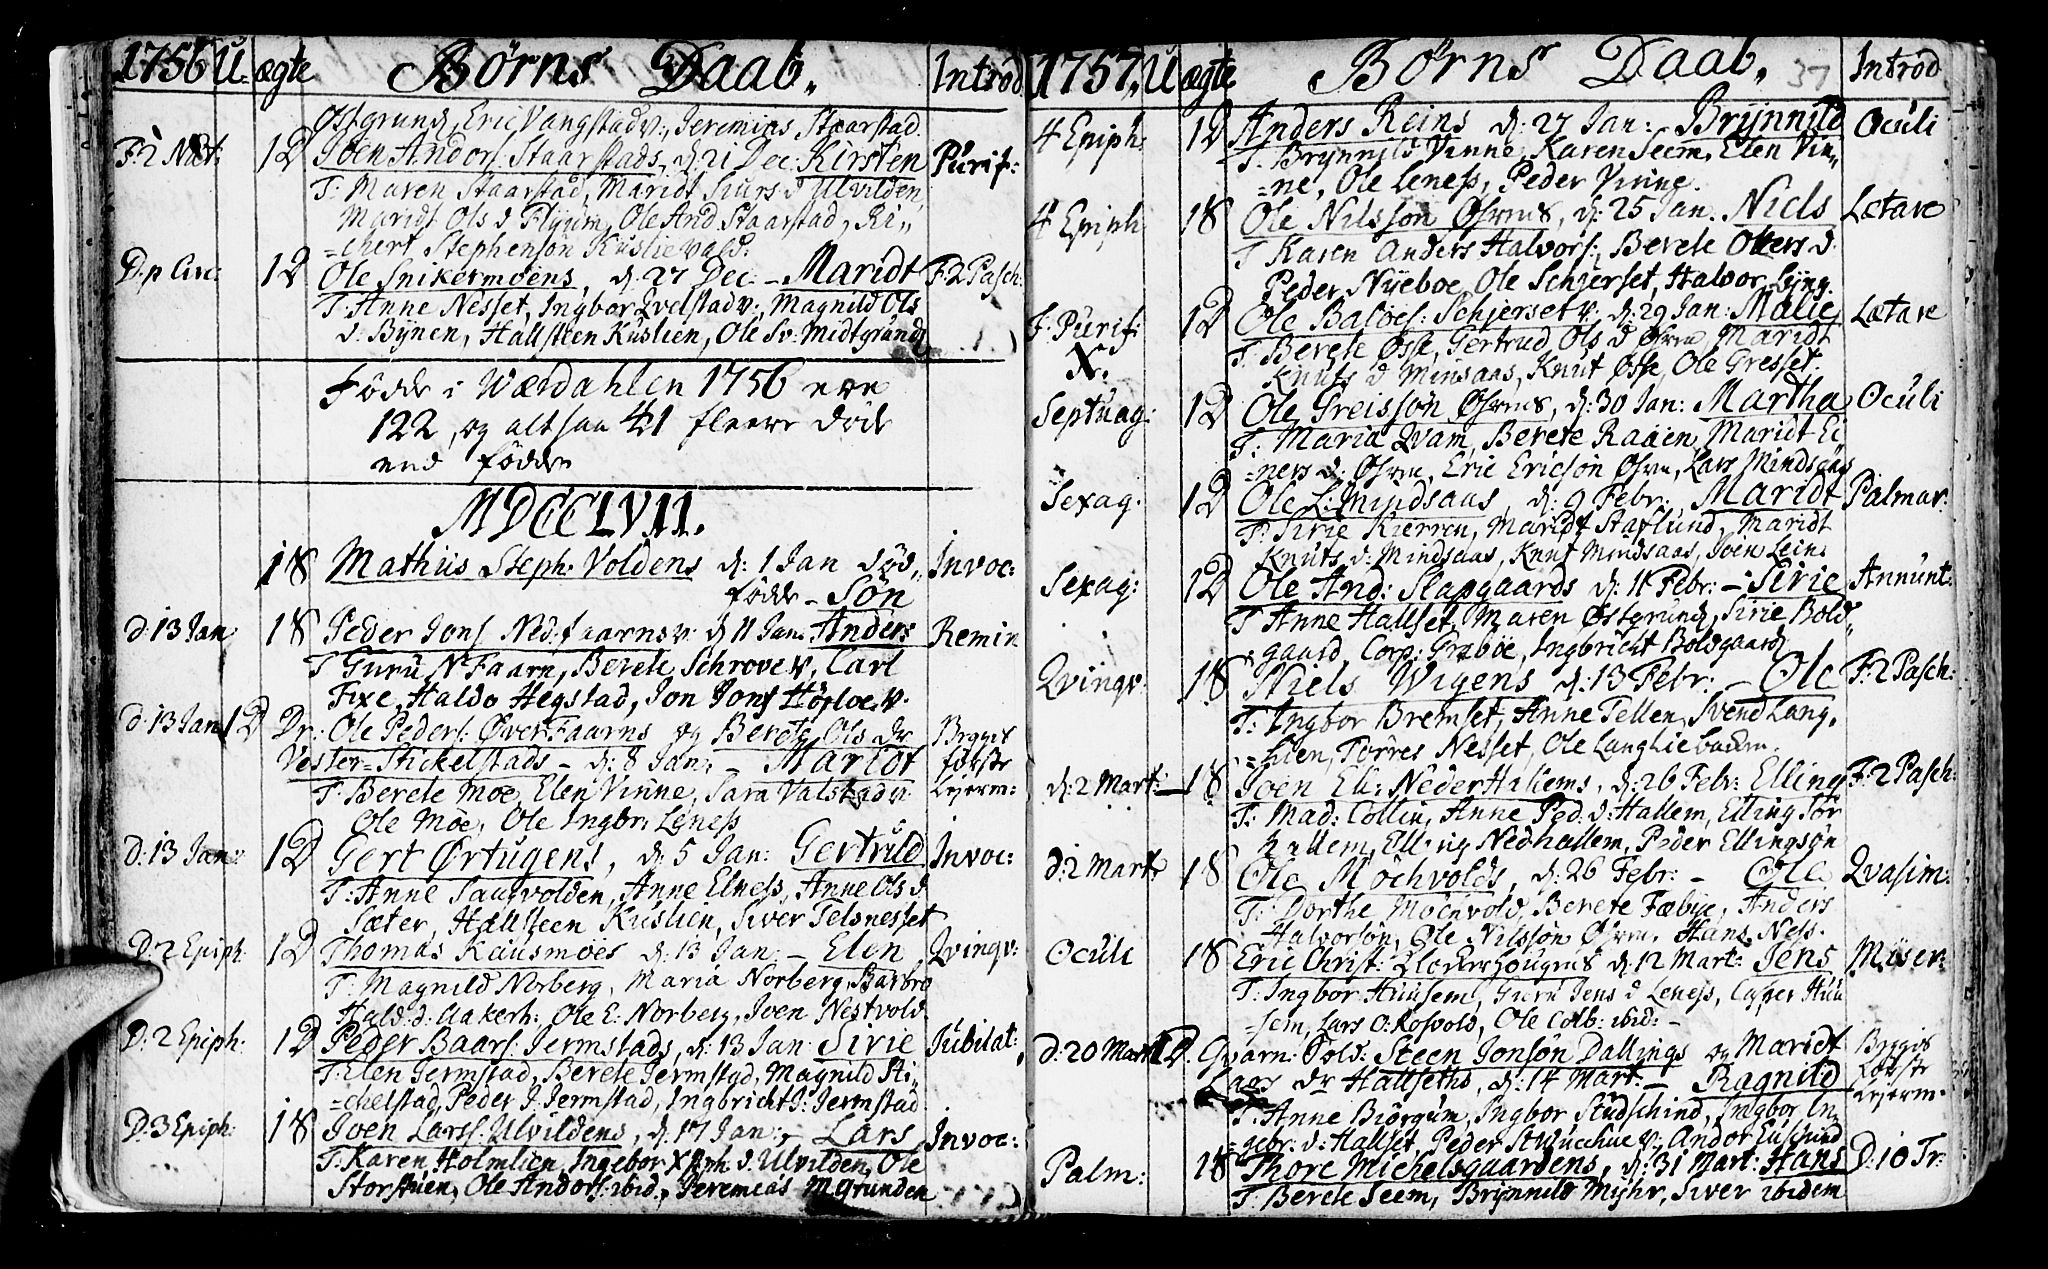 1756 U. ægte Børns Daab. Introd
Østgrund, Eric Vangstadv:, Jeremias Staarstad.
F. 2 Nat: 1 D Joen Anders: Staarstads, d: 21 Dec: Kirsten Purif:
T: Maren Staarstad, Maridt Siurs d Ulvilden,
Maridt Ols d Flyum, Ole And Staarstad, Ri=
=chert Stephensön Kuslievald.
D. p Circ: 1 D Ole Snikermoens, d: 27 Dec – Maridt F. 2 Pasch:
T: Anne Nesset, Ingbor Qvelstadv:, Magnild Ols
d: Bÿnen, Hallsteen Kuslien, Ole Sv: Midtgrund
Födde i Værdahlen 1756 ere
122, og altsaa 41 fleere döde
end födde
MDCCLVII.
18 Mathiis Steph: Voldens d: 1 Jan död= Invoc:
födde – Sön
d: 13 Jan 18 Peder Jons Ned: faarnsv: d 11 Jan: Anders Remin
T Guru N Faarn, Berete Schrovev, Carl
Fixe, Haldo Hegstad, Jon Jons Höfloev.
d: 13 Jan 1 D Dr: Ole Peders: Øver Faarns og Berete Ols dr Bÿgit
Vester=Stickelstads – d: 8 Jan: – Maridt første
T: Berete Moe, Elen Vinne, Sara Valstadv Lejerm:
Ole Moe, Ole Ingbr: Leness
d: 13 Jan: 1 D Gert Ørtugens, d: 5 Jan: Gertrud Invoc:
T: Anne Saugvolden, Anne Elness, Anne Ols d
Sæter, Hallsteen Kuslien, Siver Telsnesset
D: 2 Epiph: 1 D Thomas Kausmoes d: 13 Jan: – Elen Qvinqv:
T: Magnild Norberg, Maria Norberg, Barbro
Hald: d: Aakerh: Ole E: Norberg, Joen Nestvold
D: 2 Epiph: 1 D Peder Baars: Jermstads, d: 13 Jan: Sirie Jubilat:
T: Elen Jermstad, Berete Jermstad, Magnild Sti=
=chelstad, Peder J: Jermstad, Ingbricht J: Jermstad
D: 3 Epiph: 18 Joen Larss: Ulvildens, d: 17 Jan: – Lars Invoc:
T: Karen Holmlien, Ingebor Xstph: d Ulvilden, Ole
Storstuen, Ole Anders: ibid:, Jeremias M grunden
1757. U ægte Børns Daab. 37 Introd
4 Epiph: 1 D Anders Reins d: 27 Jan: Brÿnnild Oculi
T: Brynnild Vinne, Karen Seem, Elen Vin=
=ne, Ole Leness, Peder Vinne.
4 Epiph 18 Ole Nilssön Øsvnes, d: 25 Jan. Niels Lætare
T Karen Anders Halvors:, Berete Olders d.
Peder Nÿeboe, Ole Schierset, Halvor Lÿng.
F. Purif: 1 D Ole Baroes: Schjersetv: d: 29 Jan: Malie Lætare
N. T: Berete Øsse, Gertrud Ols d Øsvn, Maridt
Knuts d Minsaas, Knut Øsse, Ole Gresset.
Septuag: 1 D Ole Greissön Øsvnes, d: 30 Jan: Martha Oculi
T: Maria Qvam, Berete Raaen, Maridt Ei=
=ners d: Øsvn, Eric Ericsön Øsvn, Lars Mindsaas
Sexag: 1 D Ole L: Mindsaas, d: 9 Febr: Maridt Palmar:
T: Sirie Kierren, Maridt Staflund, Maridt
Knuts d: Mindsaas, Knut Mindsaas, Joen Lein.
Sexag: 1 D Ole And: Slapgaards d: 11 Febr: – Sirie Annunt:
T Anne Hallset, Maren Østgrund, Sirie Bold=
=gaard, Corp: Græböe, Ingbricht Boldgaard
Qvinqv: 18 Niels Wigens d: 13 Febr: – Ole F: 2 Pasch:
T: Ingbor Bremset, Anne Tellen, Svend Lang=
=lien, Torres Nesset, Ole Langliebaum.
d: 2 Mart: 18 Joen El: Neder Hallems, d: 26 Febr: Elling F: 2 Pasch:
T: Mad: Collin, Anne Ped: d: Hallem, Elling Tor
Hallem, Elling Nedhallem, Peder Ellingsön
d: 2 Mart: 18 Ole Möchvolds, d: 26 Febr: – Ole Qvasim:
T: Dorthe Möchvold, Berete Fæbÿe, Anders
Halvorsön, Ole Nilssön Øsvn, Hans Ness.
Oculi 18 Eric Christ: Klockerhougens d: 12 Mart: Jens Miser:
T: Ingbor Huusem, Guru Jens d Leness, Casper Huu
=sem, Lars O: Rosvold, Ole Colb: ibid: –
d: 20 Mart 1 D Qvarn: Sold: Steen Jonsön Dallings og Maridt Bÿgit
Lars dr Hallseths, d: 14 Mart: – Ragnild Første
T: Anne Biörgum, Ingbor Studschind, Ingbor In Lejerm.
=gebr: d: Hallset, Peder v. Andor
Palm: 18 Thore Michelsgaardens, d: 31 Mart: Hans D: 10 Tr:
T: Berete Seem, Brÿnnild Mÿhr, Siver ibidem